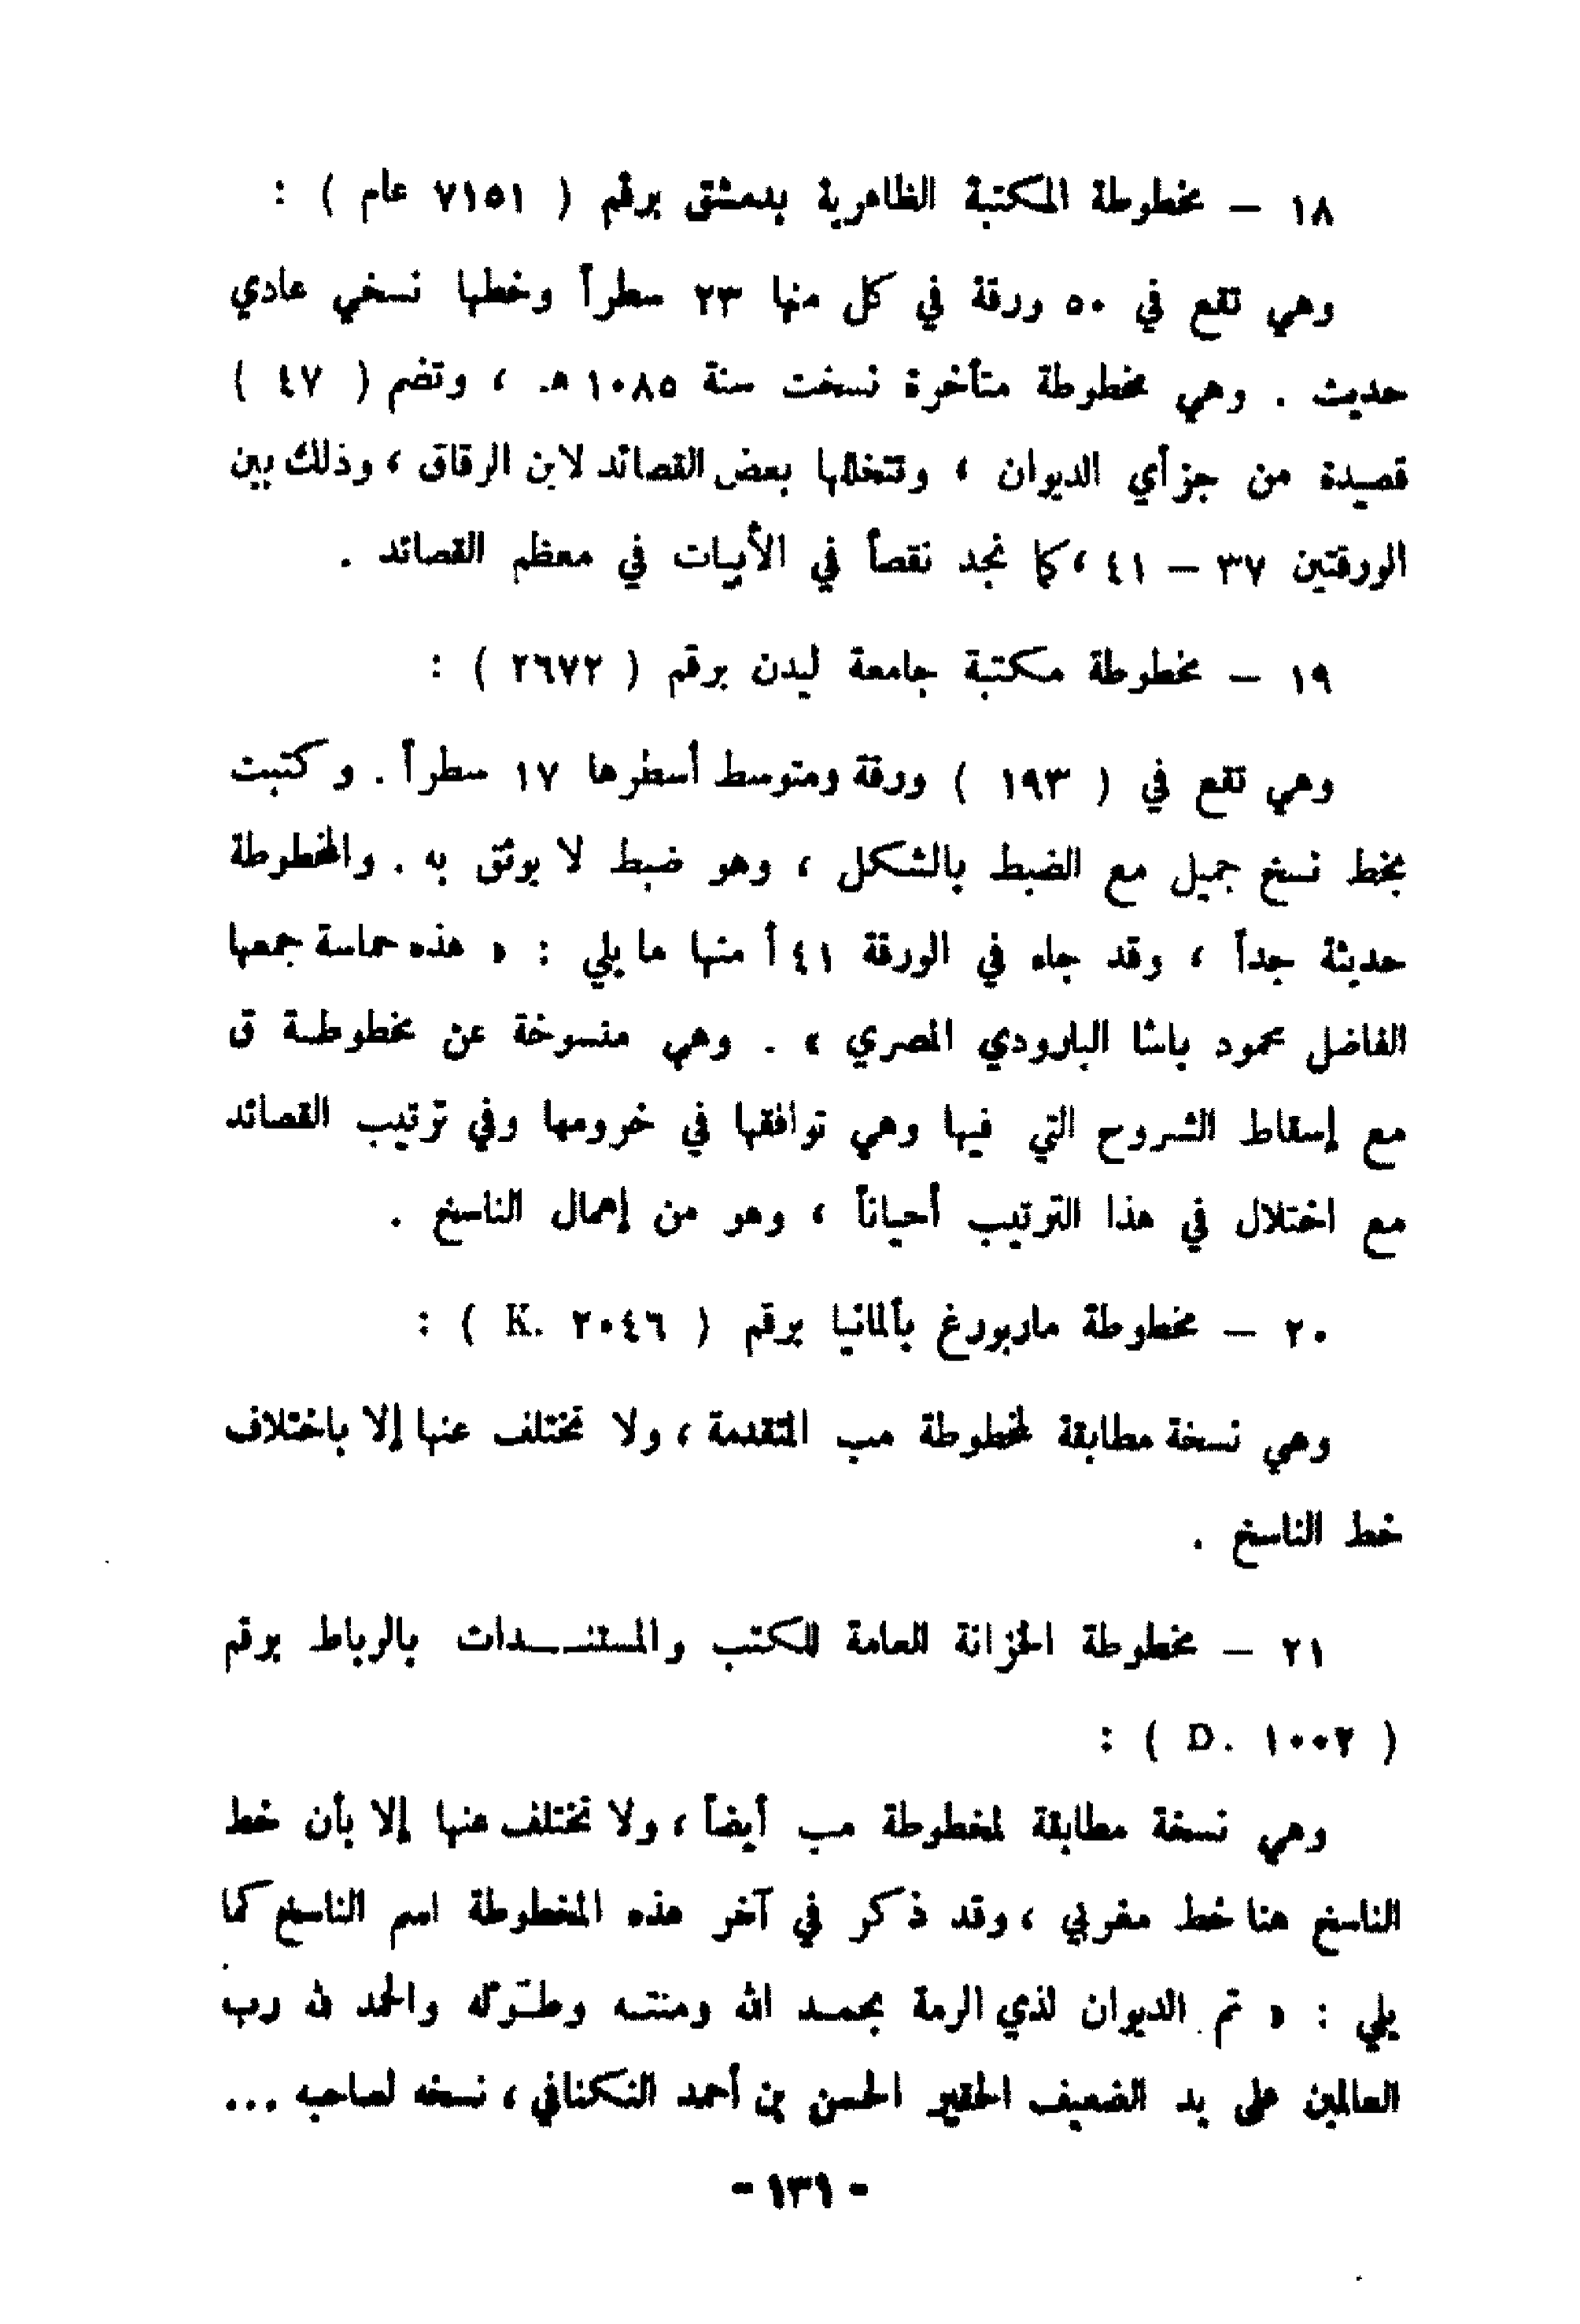 ١٨ – مخطوطة المكتبة الظاهرية بدمشق برقم ( ٧١٥١ عام ) :
وهي تقع في ٥٠ ورقة في كل منها ٢٣ سطراً وخطها نسخي عادي
حديث . وهي مخطوطة متأخرة نسخت سنة ١٠٨٥ هـ ، وتضم ( ٤٧ )
قصيدة من جزأي الديوان ، وتتخللها بعض القصائد لابن الرقاق ، وذلك بين
الورقتين ٣٧ – ٤١ ، كما نجد نقصاً في الأبيات في معظم القصائد .
١٩ – مخطوطة مكتبة جامعة ليدن برقم ( ٢٦٧٢ ) :
وهي تقع في ( ١٩٣ ) ورقة ومتوسط أسطرها ١٧ سطراً . وكتبت
بخط نسخ جميل مع الضبط بالشكل ، وهو ضبط لا يوثق به . والمخطوطة
حديثة جداً ، وقد جاء في الورقة ٤١ أ منها ما يلي : « هذه حماسة جمعها
الفاضل محمود باشا البارودي المصري » . وهي منسوخة عن مخطوطة ق
مع إسقاط الشروح التي فيها وهي توافقها في خرومها وفي ترتيب القصائد
مع اختلال في هذا الترتيب أحياناً ، وهو من إهمال الناسخ .
٢٠ – مخطوطة ماربورغ بألمانيا برقم ( K. ٢٠٤٦ ) :
وهي نسخة مطابقة لمخطوطة مب المتقدمة ، ولا تختلف عنها إلا باختلاف
خط الناسخ .
٢١ – مخطوطة الخزانة العامة للكتب والمستنـدات بالرباط برقم
( D. ١٠٠٢ ) :
وهي نسخة مطابقة لمخطوطة مب أيضاً ، ولا تختلف عنها إلا بأن خط
الناسخ هنا خط مغربي ، وقد ذكر في آخر هذه المخطوطة اسم الناسخ كما
يلي : « تم الديوان لذي الرمة بحمـد الله ومنتـه وطـَوله والحمد لله رب
العالمين على يد الضعيف الحقير الحسن بن أحمد النكنافي ، نسخه لصاحبه ...
- ١٣١ -